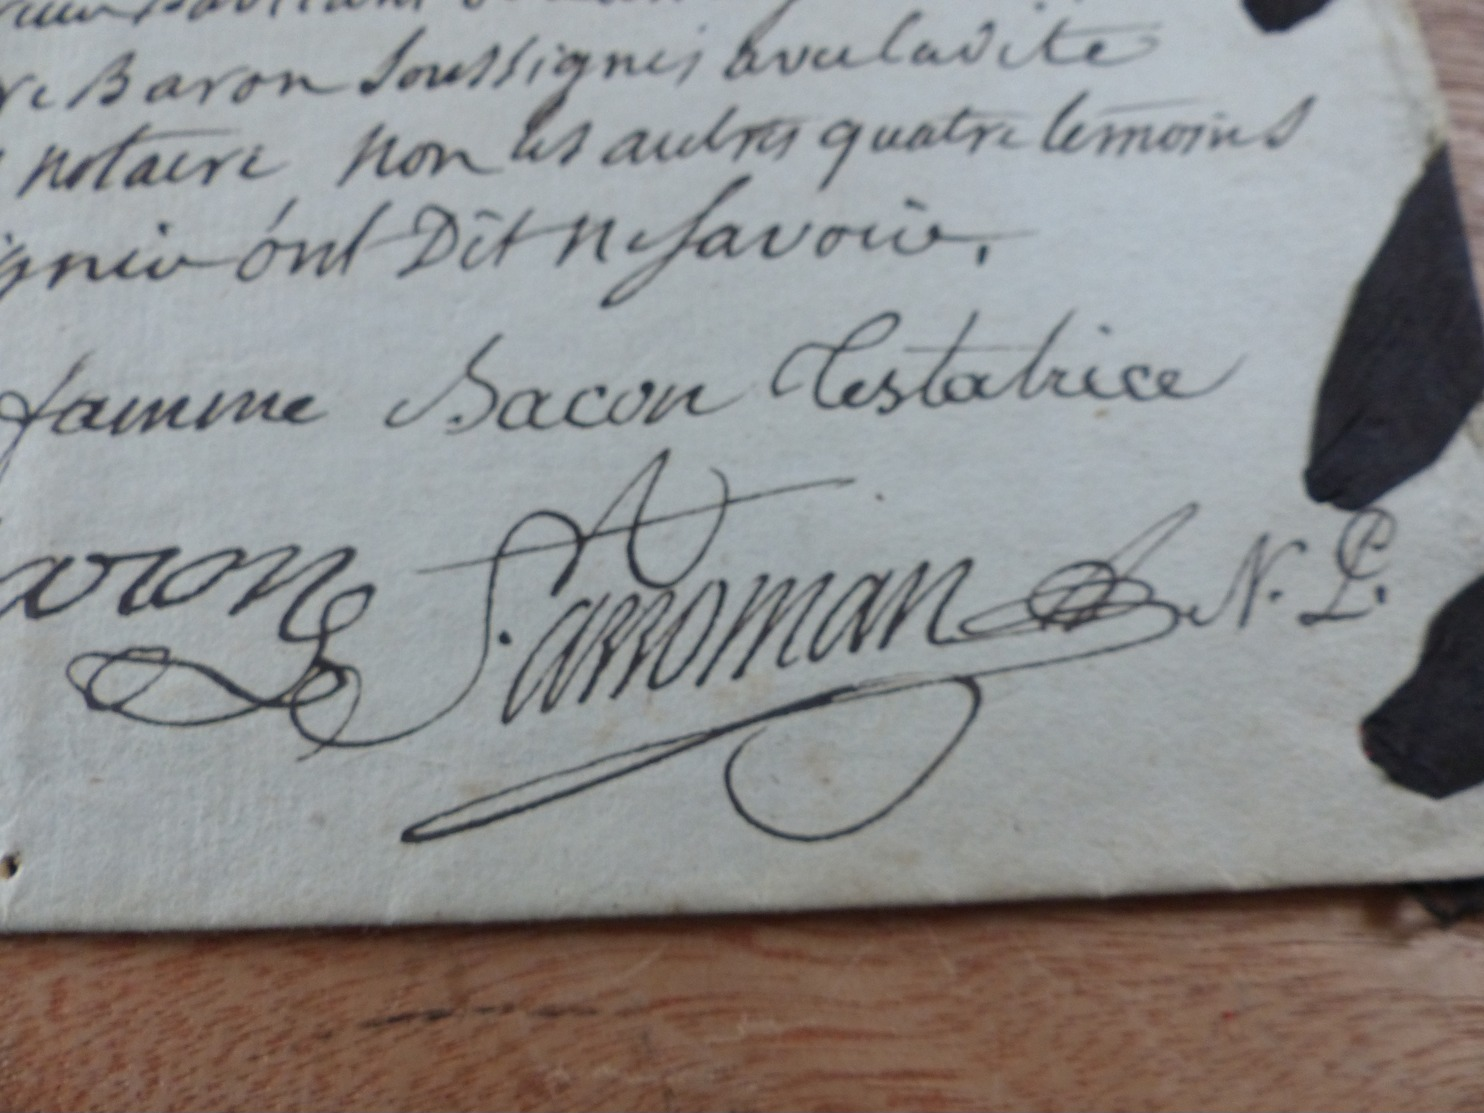 re Baron Soussignés avec ladite
notaire non les autres quatre temoins
ont Dit ne savoir.
famme Bacon Testatrice
aron Sarroman N. P.